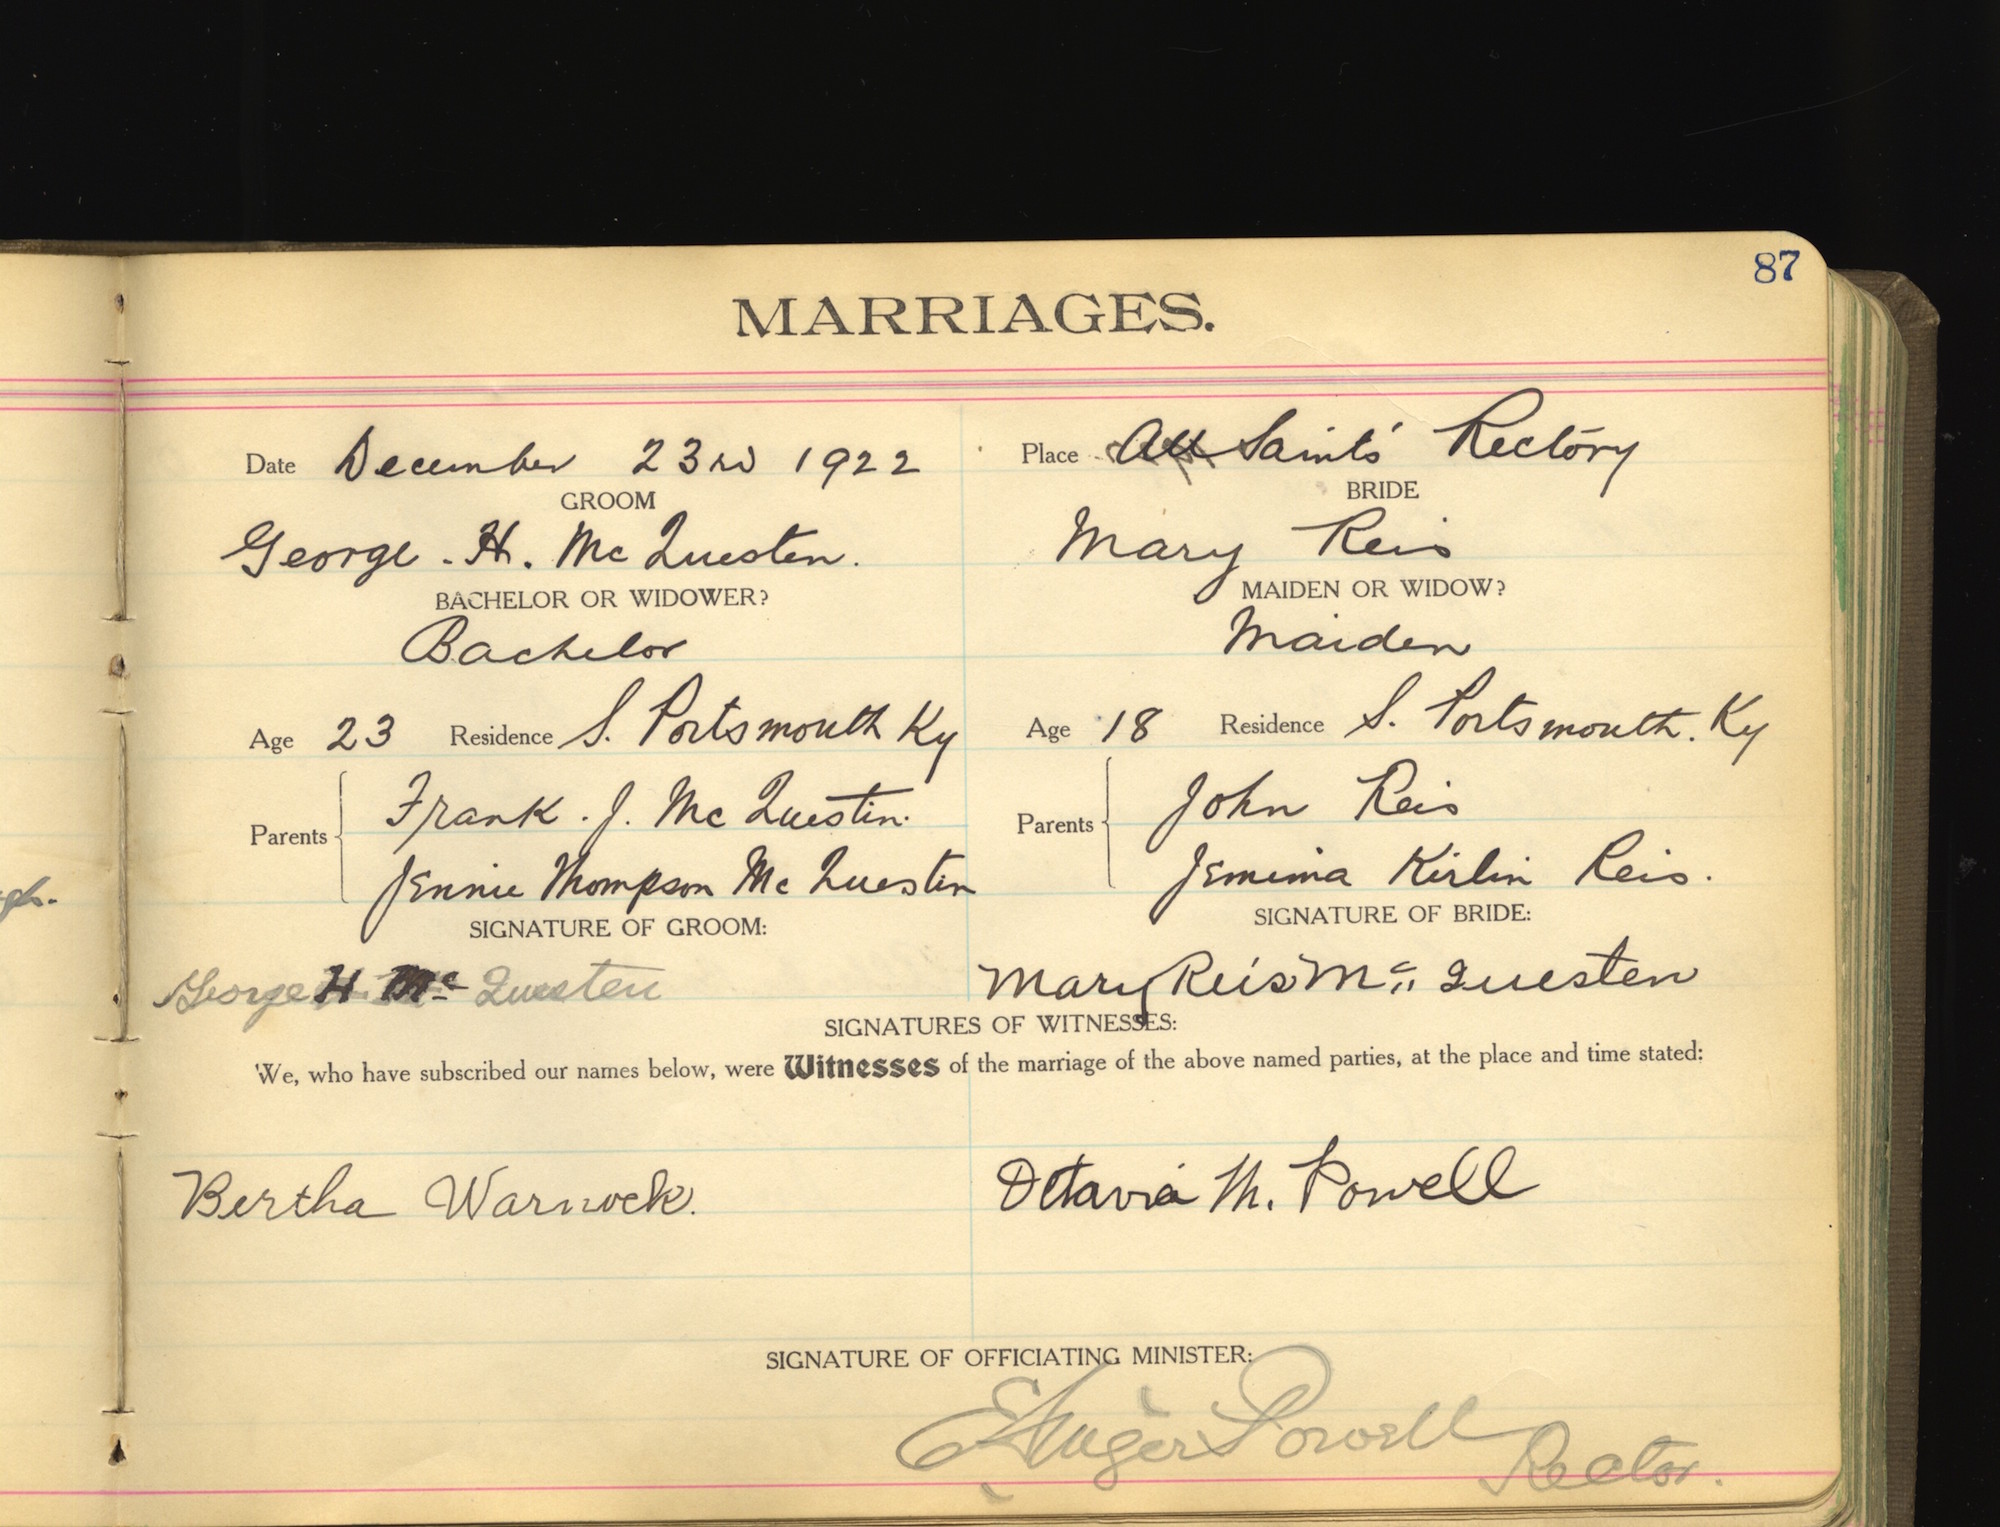 87
MARRIAGES.
Date December 23rd 1922
Place All Saints' Rectory
GROOM
BRIDE
George . H. McQuesten.
Mary Reis
BACHELOR OR WIDOWER?
MAIDEN OR WIDOW?
Bachelor
Maiden
Age 23 Residence S. Portsmouth Ky
Age 18 Residence S. Portsmouth. Ky
Parents
Frank . J. McQuestin.
Jennie Thompson McQuestin
Parents
John Reis
Jemima Kirlin Reis.
SIGNATURE OF GROOM:
SIGNATURE OF BRIDE:
George H Mc Questen
Mary Reis Mc Questen
SIGNATURES OF WITNESSES:
We, who have subscribed our names below, were Witnesses of the marriage of the above named parties, at the place and time stated:
Bertha Warnock.
Octavia M. Powell
SIGNATURE OF OFFICIATING MINISTER:
E Ainger Powell
Rector.